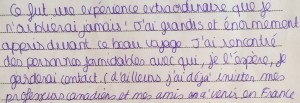 Ce fut une expérience extraordinaire que je
n'oublierai jamais! J'ai grandis et énormement
appris durant ce beau voyage. J'ai rencontré
des personnes formidables avec qui, je l'espère, je
garderai contact. (d'ailleurs j'ai déjà inviter mes
professeurs canadiens et mes amis à venir en France